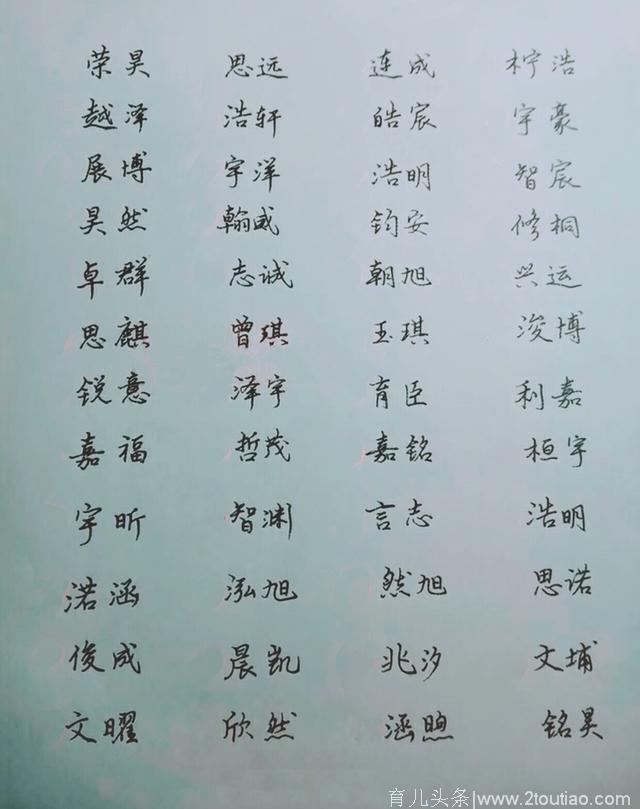 荣昊 思远 连成 柠浩
越泽 浩轩 皓宸 宇豪
展博 宇洋 浩明 智宸
昊然 翰威 钧安 修桐
卓群 志诚 朝旭 兴运
思麒 曾琪 玉琪 浚博
锐意 泽宇 育臣 利嘉
嘉福 哲茂 嘉铭 桓宇
宇昕 智渊 言志 浩明
渃涵 泓旭 然旭 思诺
俊成 晨凯 兆汐 文埔
文曜 欣然 涵煦 铭昊
育儿头条/www.2toutiao.com